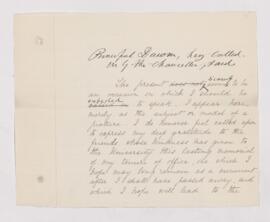 Principal Dawson, being called
on by the Chancellor, said
The present does not seem to be
an occasion on which I should be
expected to speak. I appear here
merely as the subject or model of a
picture. I do however feel called upon
to express my deep gratitude to the
friends whose kindness has given to
the University this lasting memorial
of my tenure of office, and which I
hope may long remain as a memento
after I shall have passed away, and
which I hope will lead to the